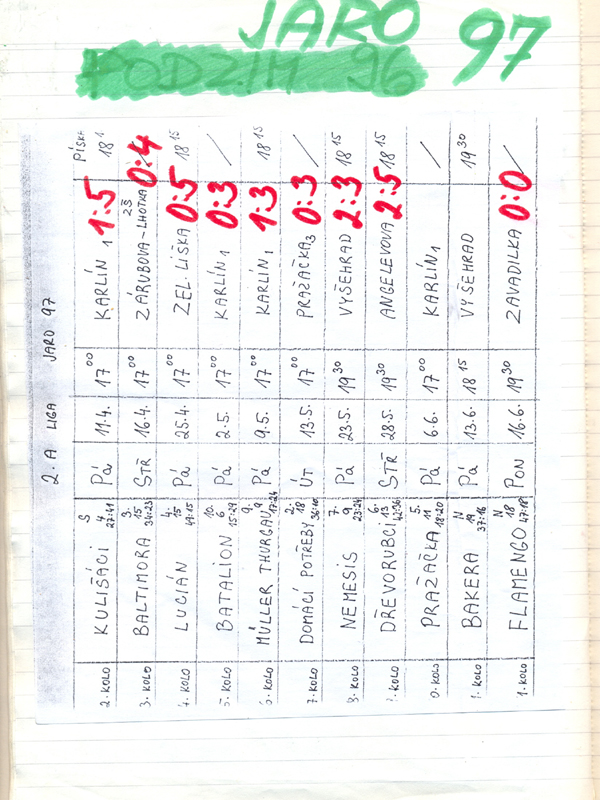 JARO 97
PODZIM 96
2. A LIGA JARO 97
PÍSKÁ
2. KOLO KULIŠÁCI S 4. 27:41 PÁ 11.4. 17⁰⁰ KARLÍN 1 1:5
3. KOLO BALTIMORA 3. 15 34:23 STŘ 16.4. 17⁰⁰ ZÁRUBOVA-LHOTKA ZŠ 0:4
4. KOLO LUCIÁN 4. 15 PÁ 25.4. 17⁰⁰ ZEL. LIŠKA 0:5 18¹⁵
5. KOLO BATALION 10. 6 15:29 PÁ 2.5. 17⁰⁰ KARLÍN 1 0:3 /
6. KOLO MÜLLER THURGAU 9. 9 17:24 PÁ 9.5. 17⁰⁰ KARLÍN 1 1:3 18¹⁵
7. KOLO DOMÁCÍ POTŘEBY 2. 18 36:10 ÚT 13.5. 17⁰⁰ PRAŽAČKA 3 0:3 /
8. KOLO NEMESIS 7. 9 23:24 PÁ 23.5. 19³⁰ VYŠEHRAD 2:3 18¹⁵
KOLO DŘEVORUBCI 6. 13 42:36 STŘ 28.5. 19³⁰ ANGELEVOVA 2:5 18¹⁵
0. KOLO PRAŽAČKA 5. 11 18:20 PÁ 6.6. 17⁰⁰ KARLÍN 1 /
1. KOLO BAKERA N 19 37:16 PÁ 13.6. 18¹⁵ VYŠEHRAD 19³⁰
1. KOLO FLAMENGO N 18 47:18 PON 16.6. 19³⁰ ZAVADILKA 0:0 /